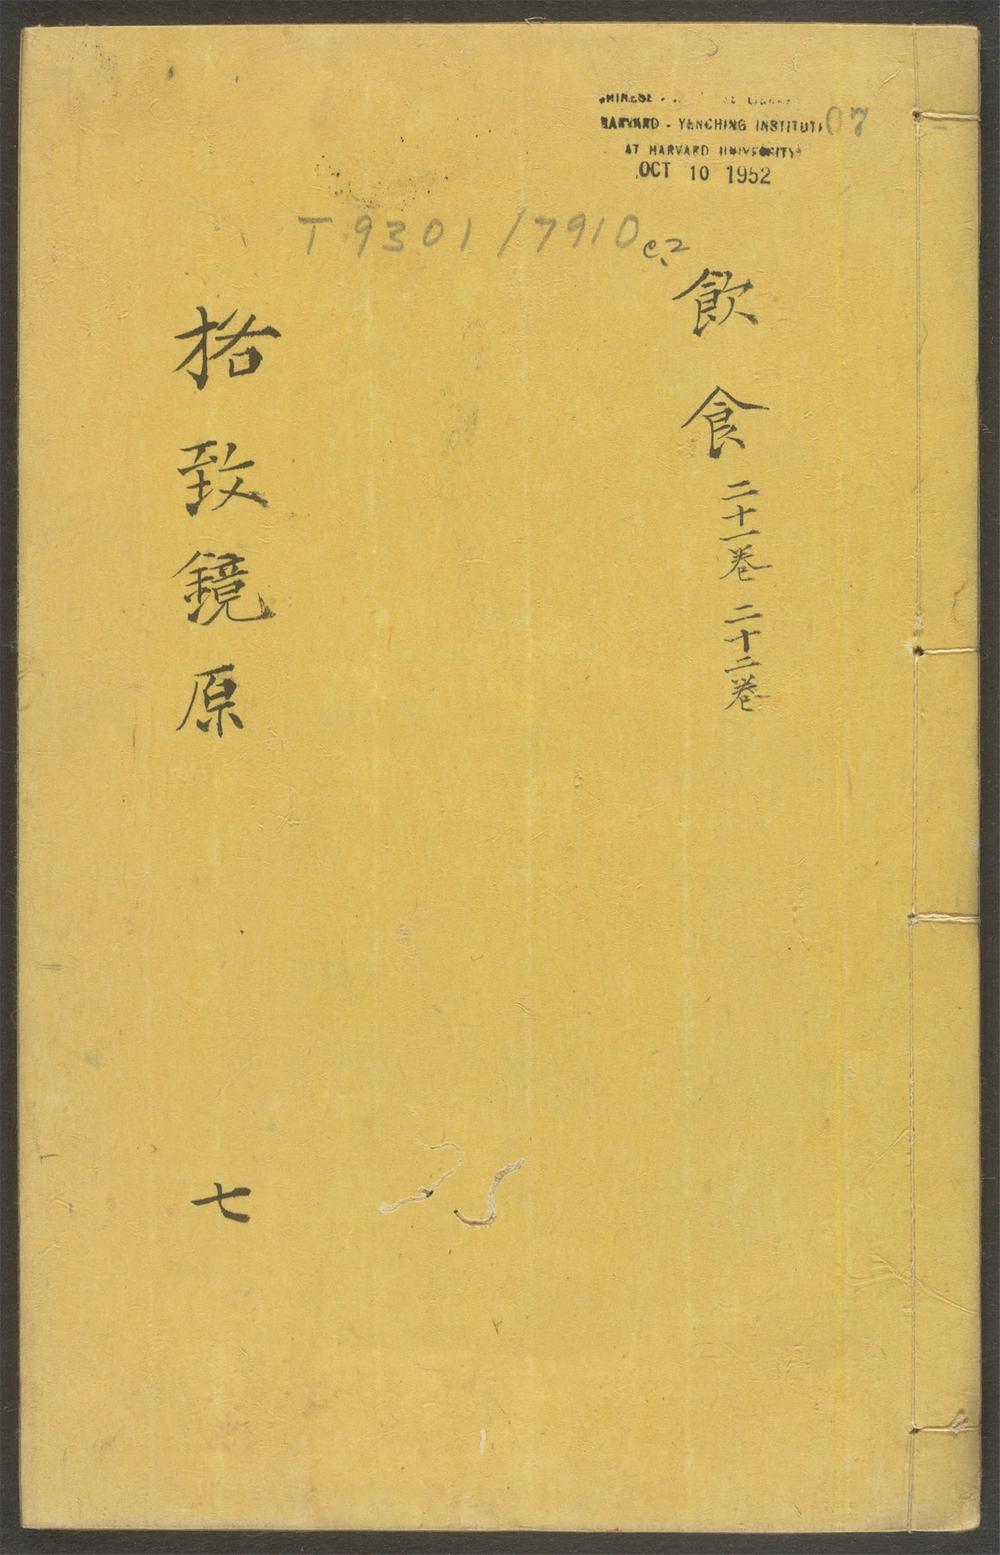 HARVARD - YENCHING INSTITUTE
AT HARVARD UNIVERSITY
OCT 10 1952
07
T 9301/7910 c.2
飲食 二十一卷 二十二卷
格致鏡原 七